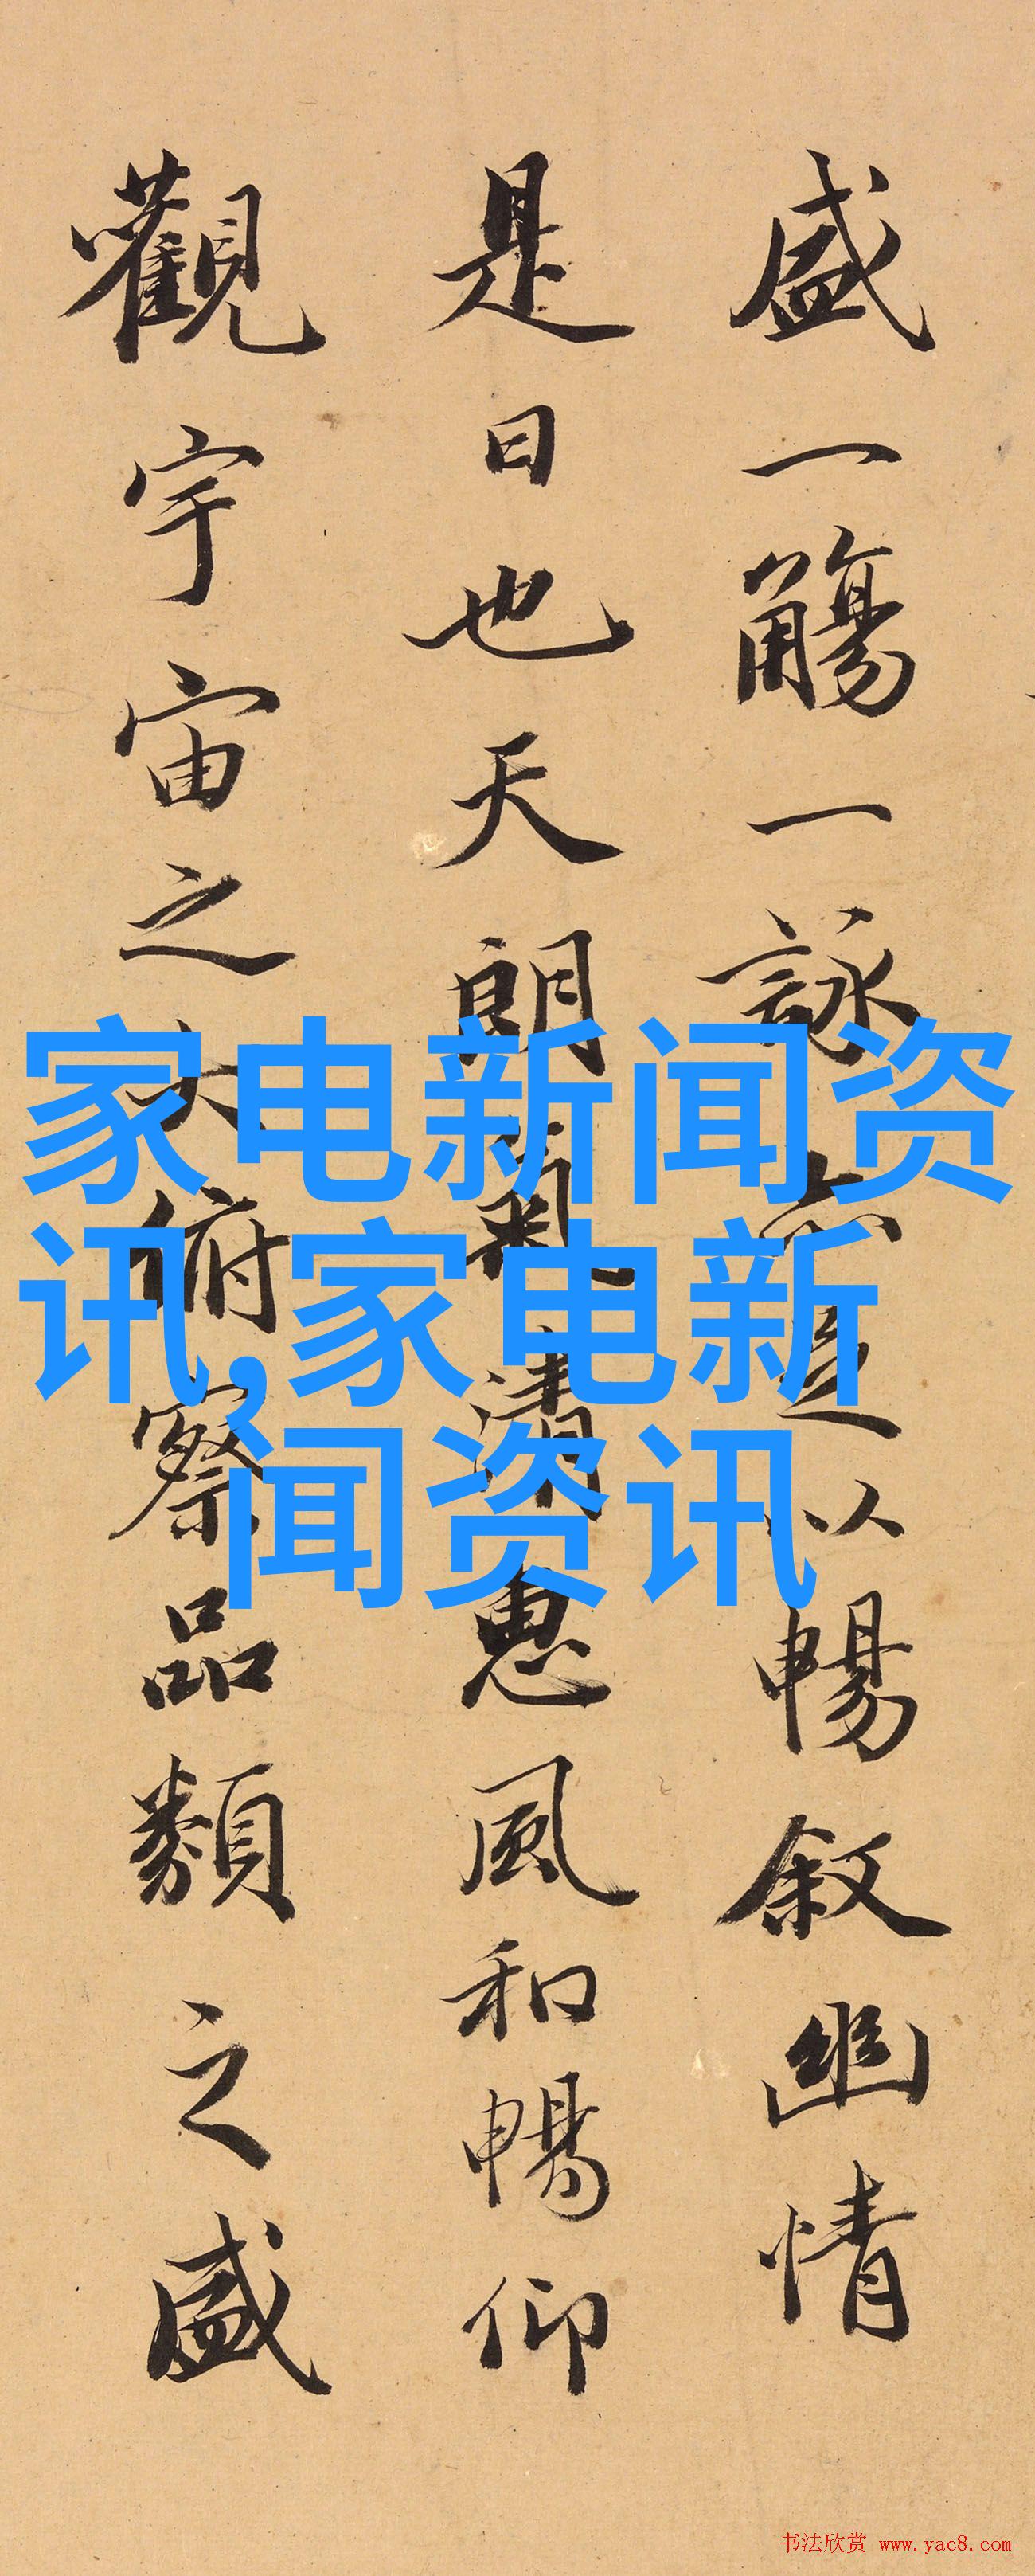 盛一觴一詠亦足以暢叙幽情
是日也天朗氣清惠風和暢仰
觀宇宙之大俯察品類之盛
家电新闻资
讯,家电新
闻资讯
书法欣赏 www.yac8.com